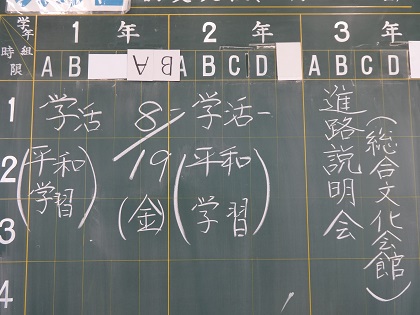 学年組
時限
1年
2年
3年
A B
A B
A B C D
A B C D
1
2
3
4
学活
(平和学習)
8/19
(金)
学活
(平和学習)
進路説明会
(総合文化会館)